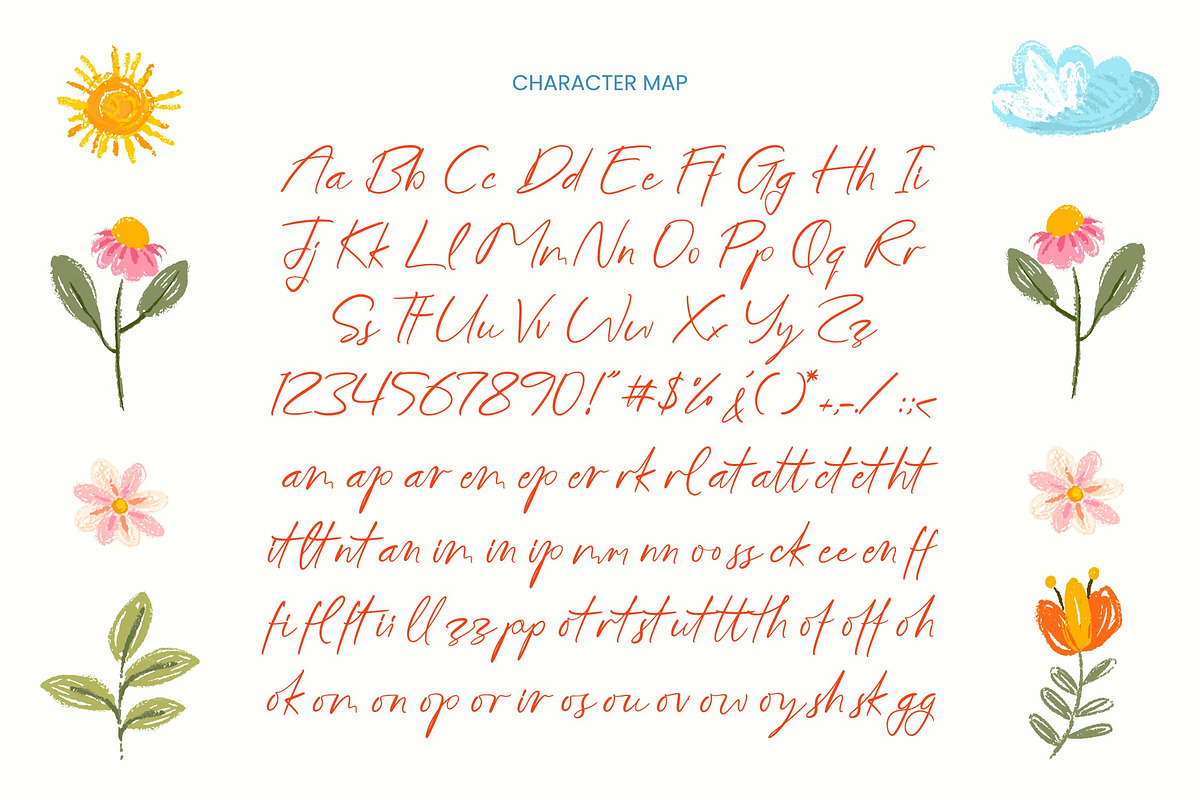 CHARACTER MAP
Aa Bb Cc Dd Ee Ff Gg Hh Ii
Jj Kk Ll Mm Nn Oo Pp Qq Rr
Ss Tt Uu Vv Ww Xx Yy Zz
1234567890!" #$% &'()* +,-./ :;<
am ap ar em ep er rk rl at att ct et ht
it lt nt an im in ip nm nn oo ss ck ee en ff
fi fl ft ii ll zz pp ot rt st ut tt th of off oh
ok om on op or ir os ou ov ow oy sh sk gg